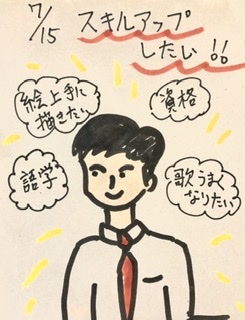 7/15 スキルアップ
したい!!
絵上手に
描きたい
資格
語学
歌うまく
なりたい